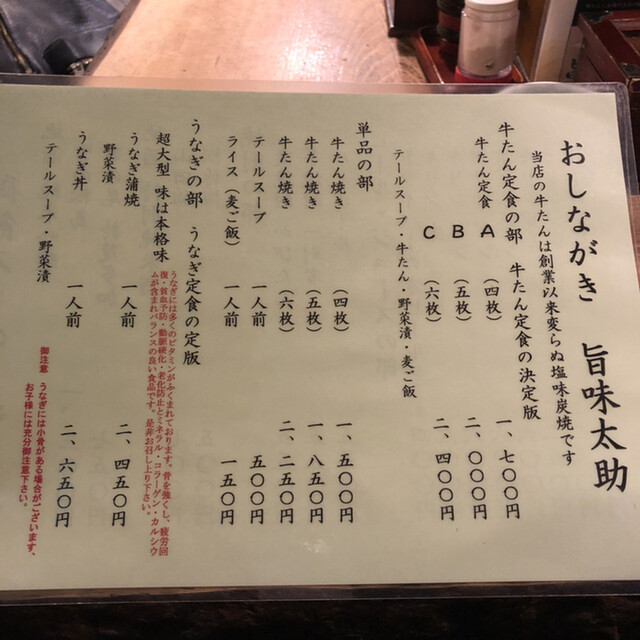 おしながき 旨味太助
当店の牛たんは創業以来変らぬ塩味炭焼です
牛たん定食の部 牛たん定食の決定版
牛たん定食 A (四枚) 一、七〇〇円
B (五枚) 二、〇〇〇円
C (六枚) 二、四〇〇円
テールスープ・牛たん・野菜漬・麦ご飯
単品の部
牛たん焼き (四枚) 一、五〇〇円
牛たん焼き (五枚) 一、八五〇円
牛たん焼き (六枚) 二、二五〇円
テールスープ 一人前 五〇〇円
ライス(麦ご飯) 一人前 一五〇円
うなぎの部 うなぎ定食の定版
超大型 味は本格味
うなぎには多くのビタミンがふくまれております。骨を強くし、疲労回
復・貧血予防・動脈硬化・老化防止とミネラル・コラーゲン・カルシウ
ムが含まれバランスの良い食品です。是非お召し上り下さい。
うなぎ蒲焼 一人前 二、四五〇円
野菜漬
うなぎ丼 一人前 二、六五〇円
テールスープ・野菜漬
御注意 うなぎには小骨がある場合がございます、
お子様には充分御注意下さい。